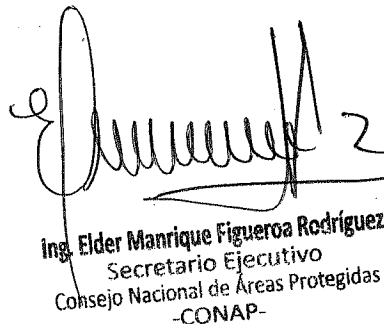 Ing. Elder Manrique Figueroa Rodríguez
Secretario Ejecutivo
Consejo Nacional de Áreas Protegidas
-CONAP-